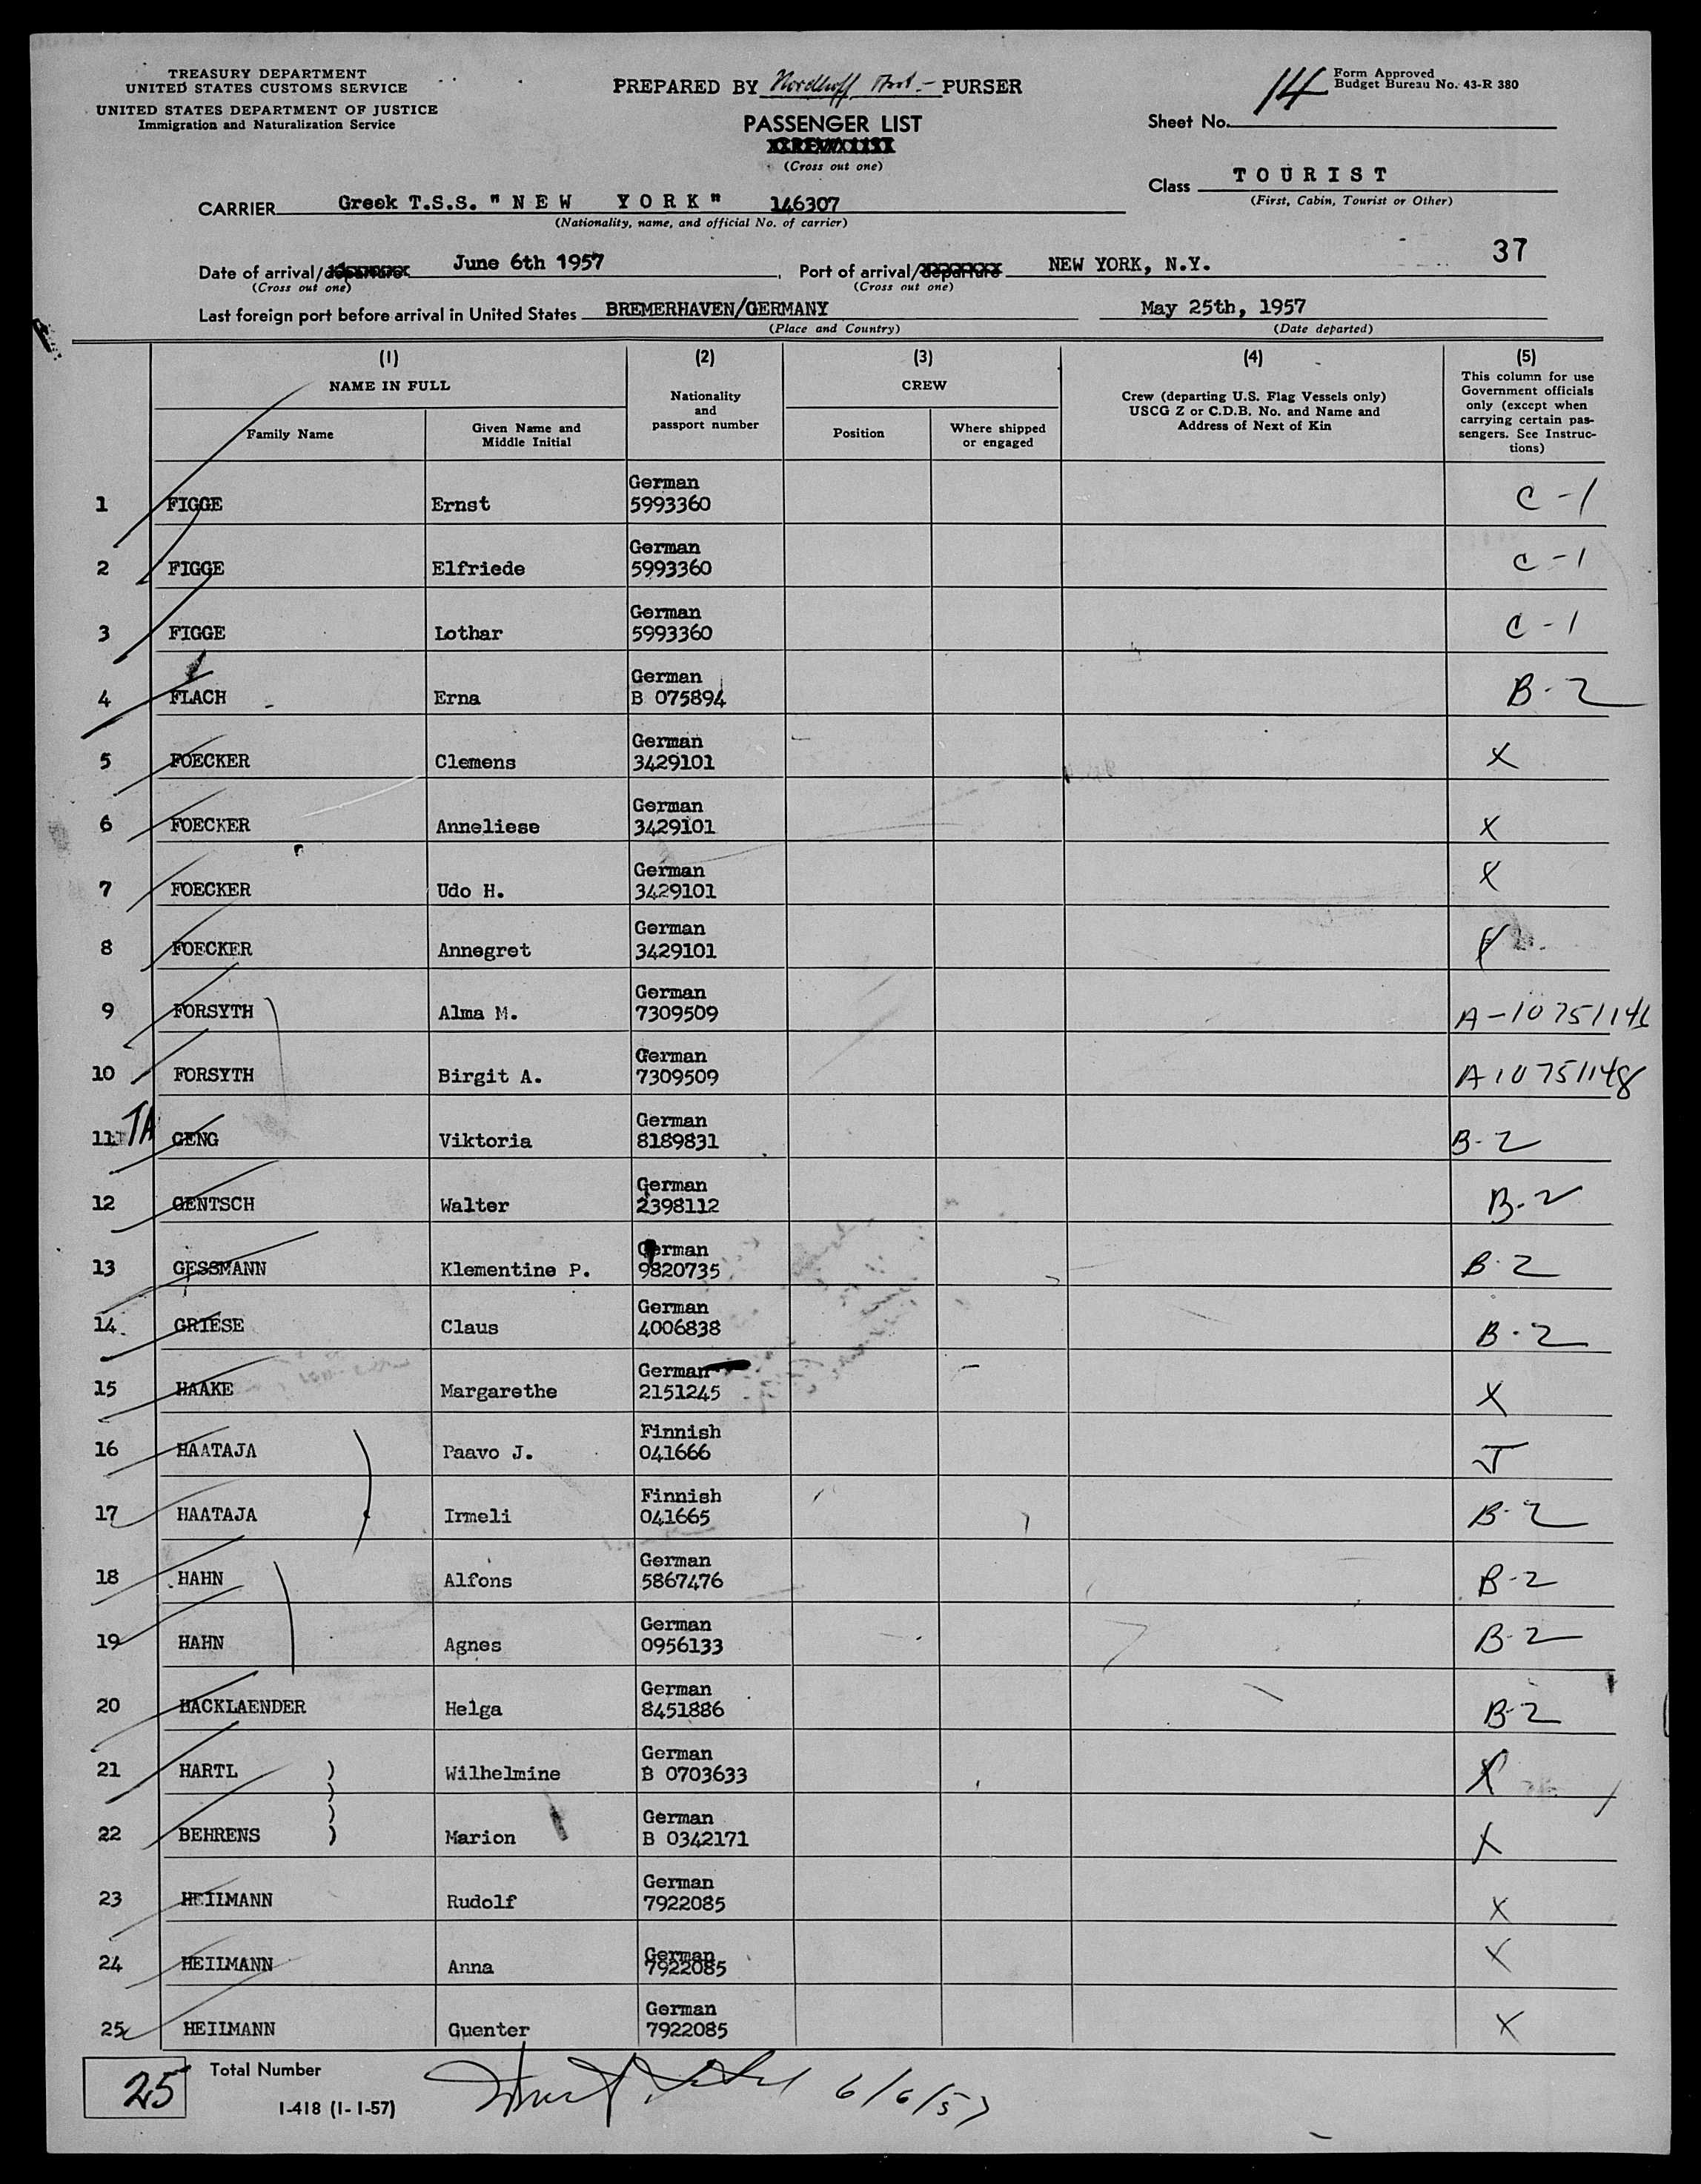 TREASURY DEPARTMENT
UNITED STATES CUSTOMS SERVICE
UNITED STATES DEPARTMENT OF JUSTICE
Immigration and Naturalization Service
PREPARED BY Nordhoff PURSER
PASSENGER LIST
(Cross out one)
14
Form Approved
Budget Bureau No. 43-R 380
Sheet No.
Class TOURIST
(First, Cabin, Tourist or Other)
CARRIER Greek T.S.S. "NEW YORK" 146307
(Nationality, name, and official No. of carrier)
37
Date of arrival/departure June 6th 1957 Port of arrival/departure NEW YORK, N.Y.
(Cross out one) (Cross out one)
Last foreign port before arrival in United States BREMERHAVEN/GERMANY May 25th, 1957
(Place and Country) (Date departed)
(1) (2) (3) (4) (5)
NAME IN FULL
Family Name
Given Name and
Middle Initial
Nationality
and
passport number
CREW
Position
Where shipped
or engaged
Crew (departing U.S. Flag Vessels only)
USCG Z or C.D.B. No. and Name and
Address of Next of Kin
This column for use
Government officials
only (except when
carrying certain pas-
sengers. See Instruc-
tions)
German
1 FIGGE Ernst 5993360 C-1
German
2 FIGGE Elfriede 5993360 C-1
German
3 FIGGE Lothar 5993360 C-1
German
4 FLACH Erna B 075894 B-2
German
5 FOECKER Clemens 3429101 X
German
6 FOECKER Anneliese 3429101 X
German
7 FOECKER Udo H. 3429101 X
German
8 FOECKER Annegret 3429101
German
9 FORSYTH Alma M. 7309509 A-10751146
German
10 FORSYTH Birgit A. 7309509 A10751148
German
11 TA GENG Viktoria 8189831 B-2
German
12 GENTSCH Walter 2398112 B-2
German
13 GESSMANN Klementine P. 9820735 B-2
German
14. GRIESE Claus 4006838 B-2
German
15 HAAKE Margarethe 2151245 X
Finnish
16 HAATAJA Paavo J. 041666 J
Finnish
17 HAATAJA Irmeli 041665 B-2
German
18 HAHN Alfons 5867476 B-2
German
19 HAHN Agnes 0956133 B-2
German
20 HACKLAENDER Helga 8451886 B-2
German
21 HARTL ) Wilhelmine B 0703633 X
German
22 BEHRENS ) Marion B 0342171 X
German
23 HEILMANN Rudolf 7922085 X
German
24 HEILMANN Anna 7922085 X
German
25 HEILMANN Guenter 7922085 X
25 Total Number
I-418 (1-1-57)
6/6/57